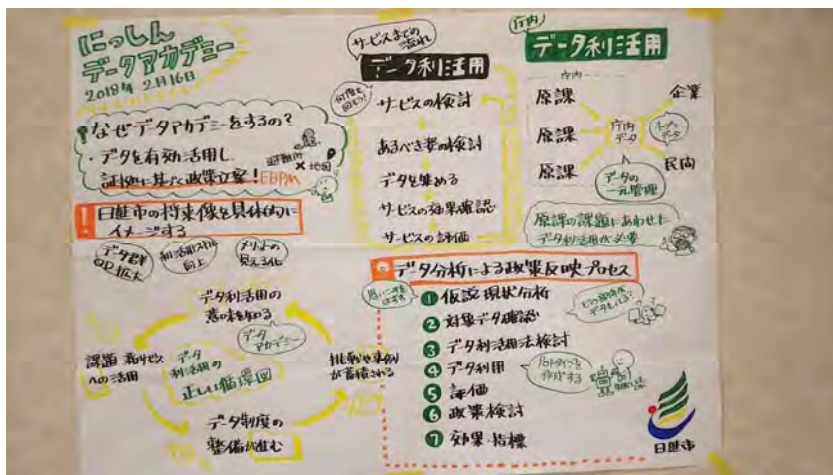 にっしん
データアカデミー
2018年 2月16日
なぜデータアカデミーをするの?
・データを有効活用し
証拠に基づく政策立案!EBPM
避難所
×地図
!日進市の将来像を具体的に
イメージする
データ群
利活用スキル
向上
メリットの
見える化
データ利活用の
意味を知る
データ
アカデミー
課題・新サービス
への活用
データ
利活用の
正しい循環図
が蓄積される
データ制度の
整備が進む
サービスまでの
流れ
データ利活用
何度も
回そう!
サービスの検討
あるべき姿の検討
データを集める
サービスの効果確認
サービスの評価
庁内
データ利活用
庁内
原課
原課
原課
庁内
データ
企業
オープン
データ
民間
データの
一元管理
原課の課題にあわせた
データ利活用が必要
データ分析による政策反映プロセス
思いこみを
はずす
1 仮説 現状分析
2 対象データ確認
3 データ利活用法検討
4 データ利用
5 評価
6 政策検討
7 効果・指標
プロトタイプを
作成する
日進市